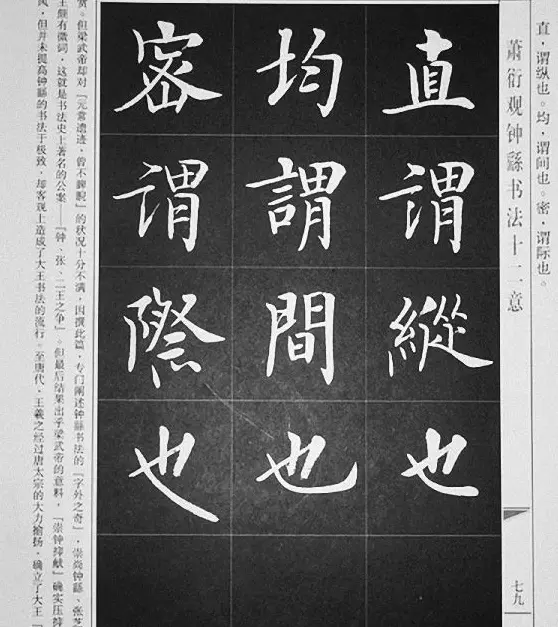 直,谓纵也。均,谓间也。密,谓际也。
萧衍观钟繇书法十二意
七九
直谓縱也
均謂間也
密谓際也
赏。但梁武帝却对『元常遗迹,曾不睥睨』的状况十分不满,因撰此篇,专门阐述钟繇书法的『字外之奇』,崇尚钟繇、张芝
王颇有微词,这就是书法史上著名的公案——『钟、张、二王之争』。但最后结果出乎梁武帝的意料,『崇钟抑献』确实压抑
风,但并未提高钟繇的书法于极致,却客观上造成了大王书法的流行。至唐代,王羲之经过唐太宗的大力揄扬,确立了大王『